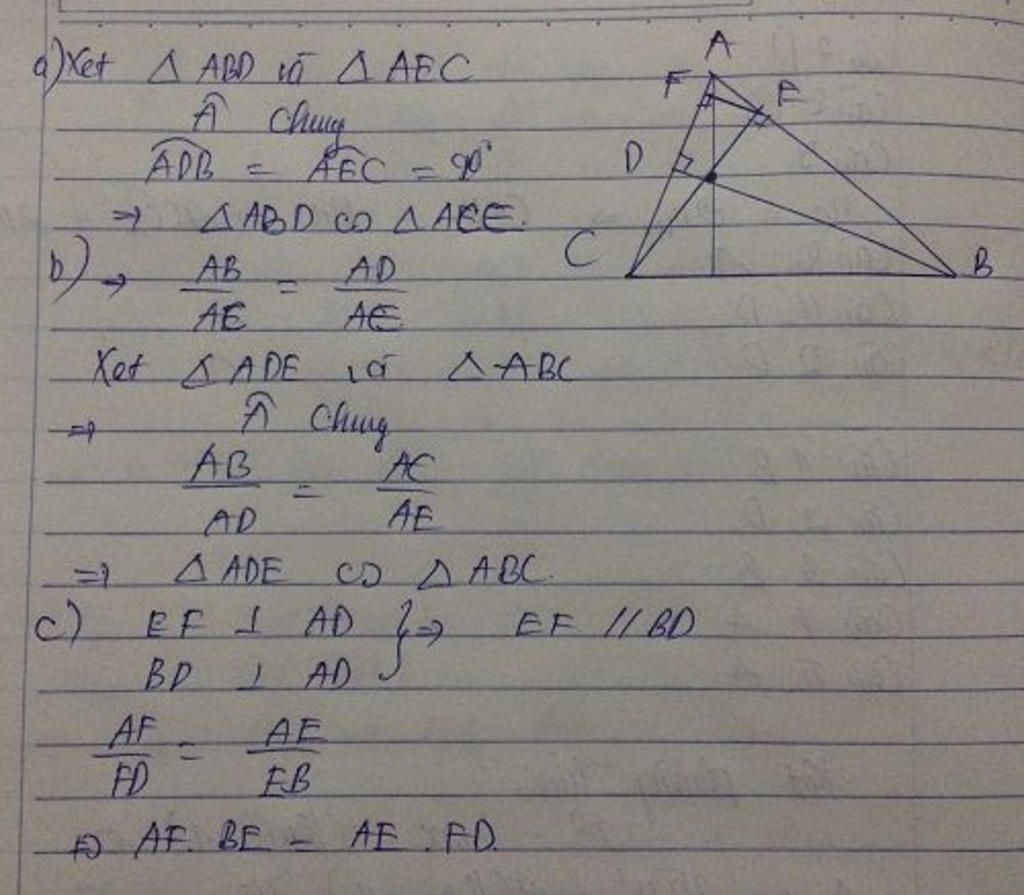 a) Xet △ ABD và △ AEC
 chung
ADB = AEC = 90°
⇒ △ ABD ∽ △ AEC.
b) → AB/AE = AD/AC
Xet △ ADE và △ ABC
⇒ Â chung
AB/AD = AC/AE
⇒ △ ADE ∽ △ ABC.
c) EF ⊥ AD } ⇒ EF // BD
BD ⊥ AD
AF/FD = AE/EB
⇒ AF. BE = AE . FD.
A
F
E
D
C
B